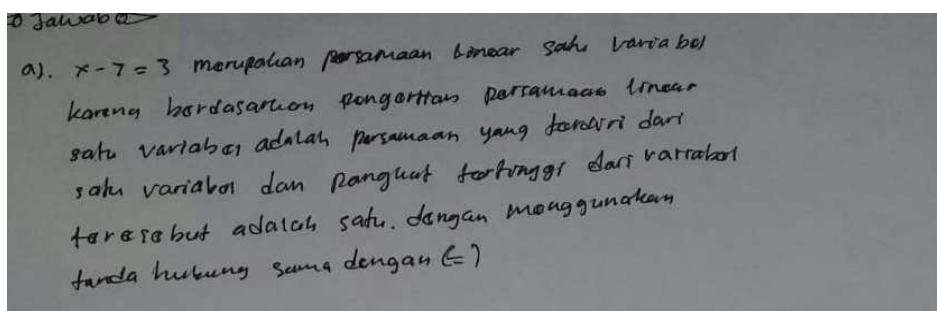 Jawab
a). x - 7 = 3 merupakan persamaan linear satu variabel
karena berdasarkan pengertian persamaan linear
satu variabel adalah persamaan yang terdiri dari
satu variabel dan pangkat tertinggi dari variabel
teresebut adalah satu. dengan menggunakan
tanda hubung sama dengan (=)